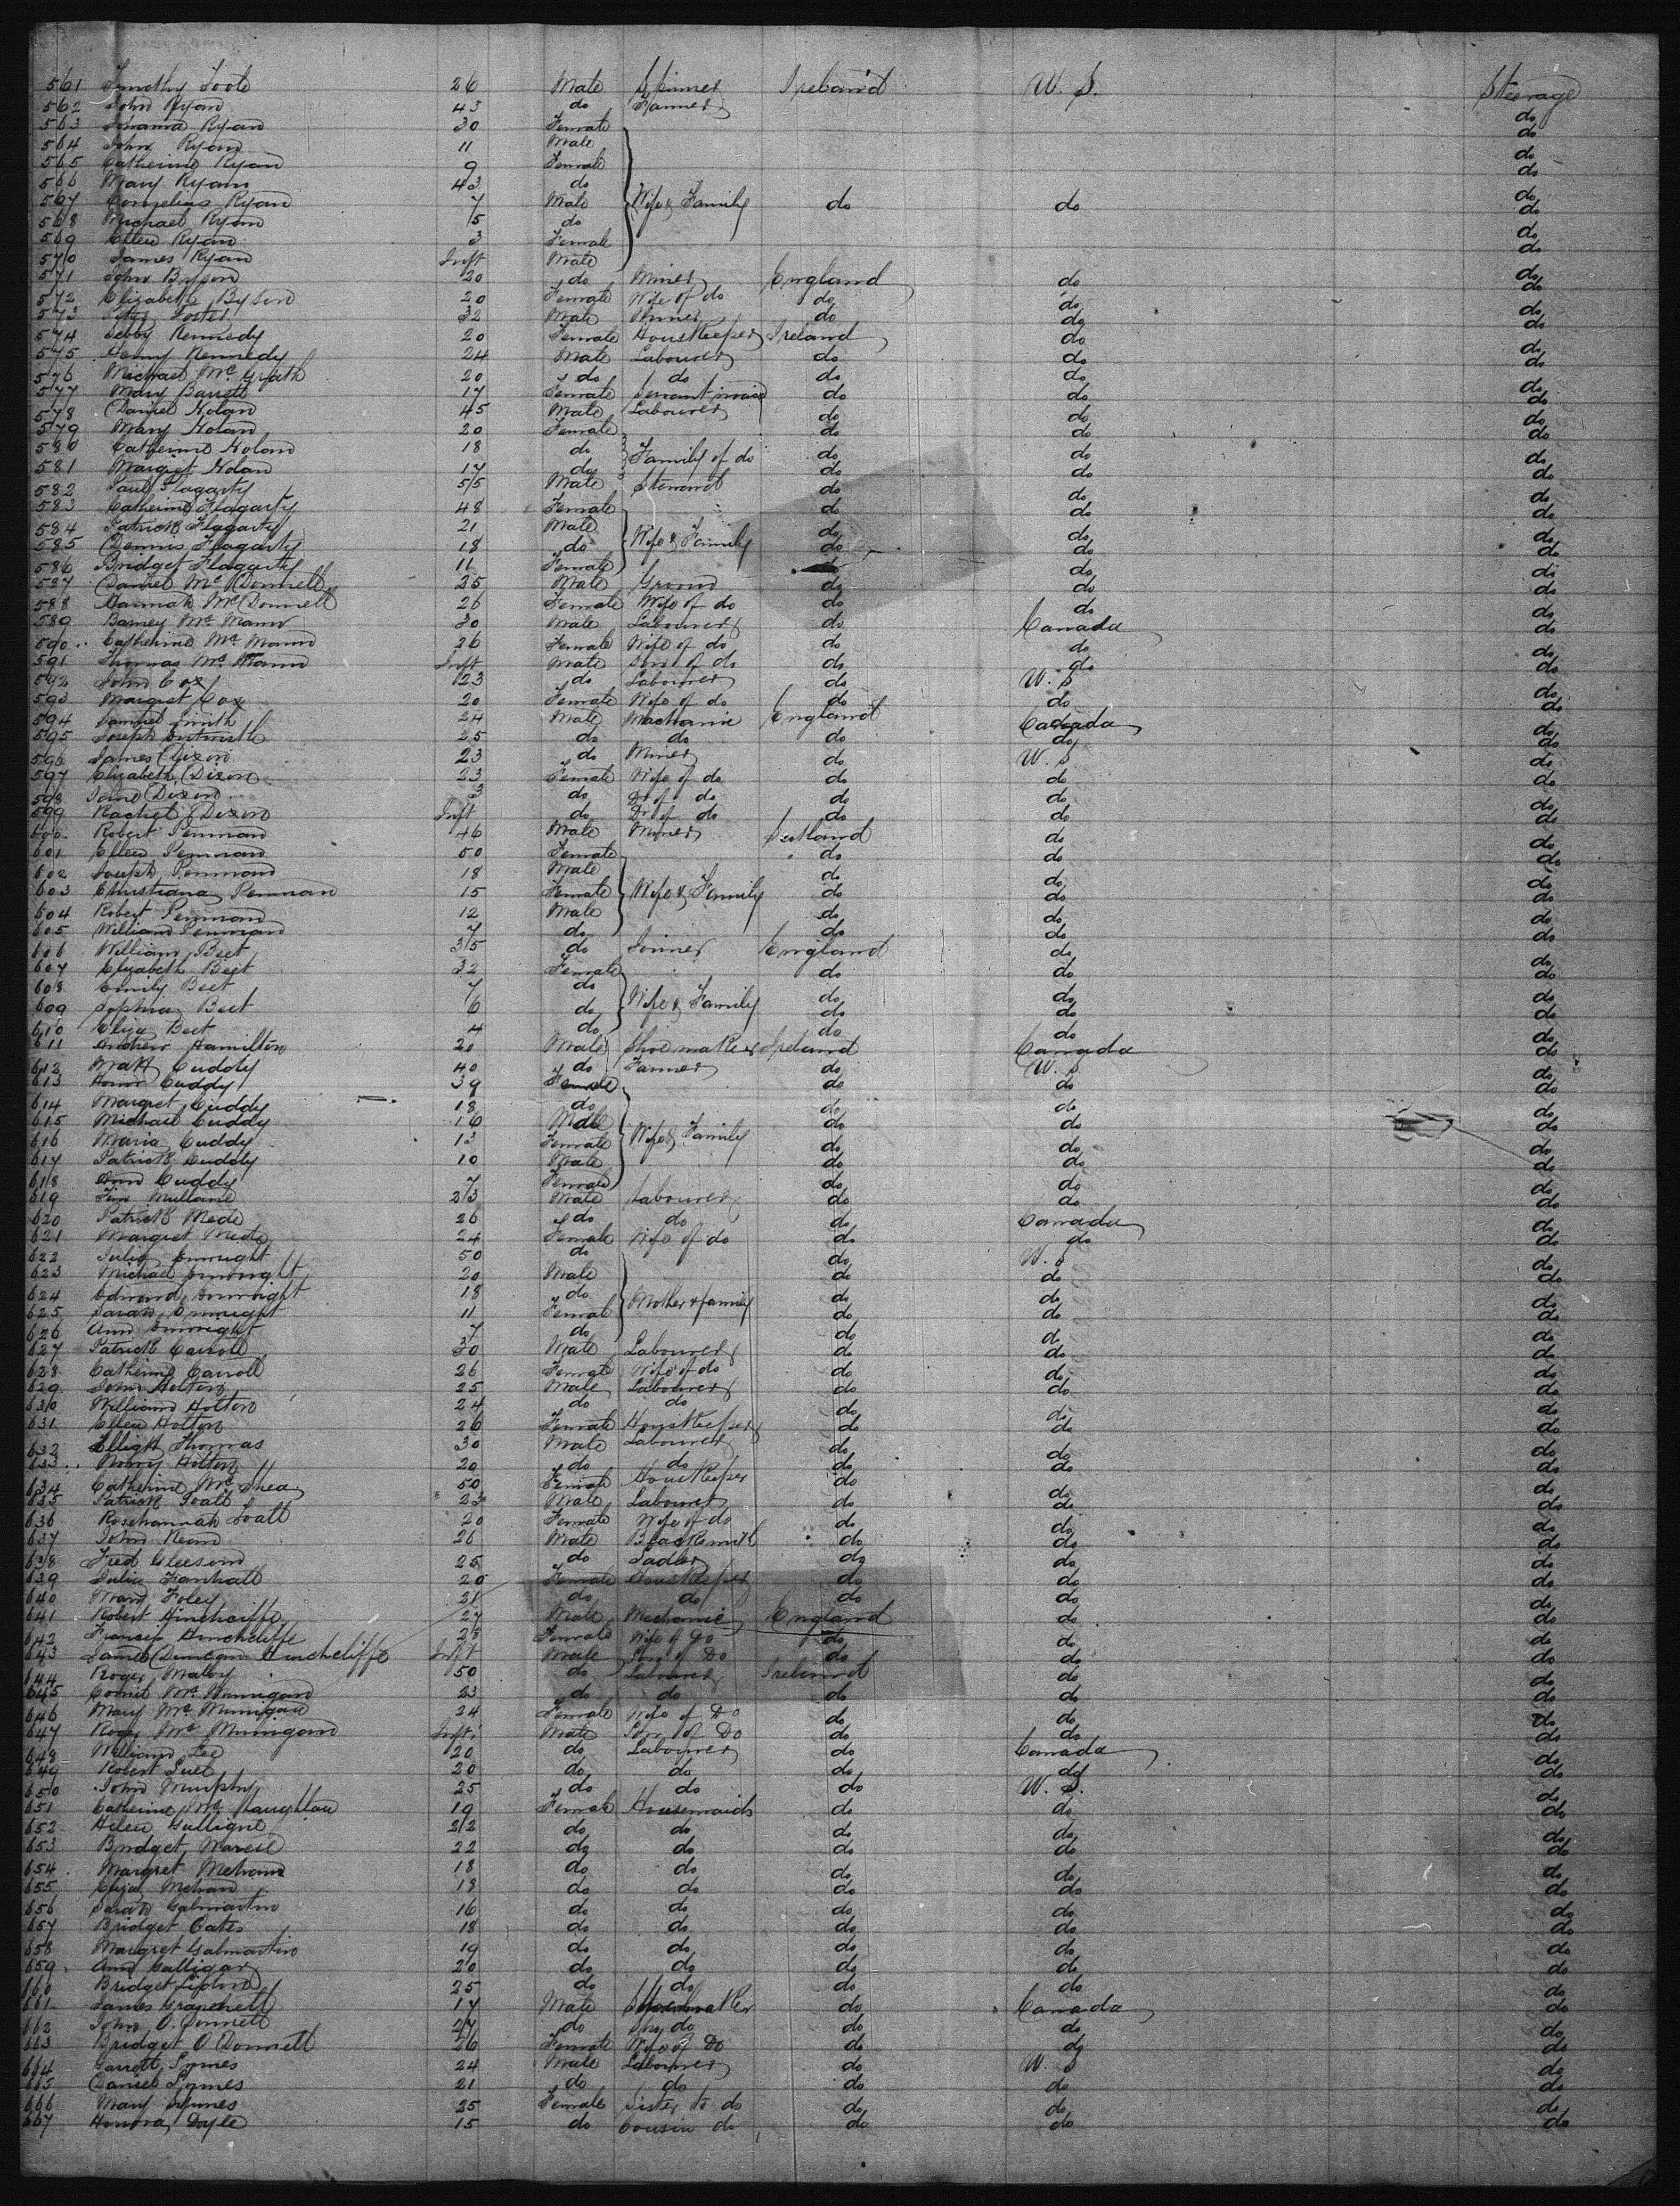 561 Timothy Toole 26 Male Spinner Ireland U.S. Steerage
562 John Ryan 43 do Farmer do
563 Johanna Ryan 30 Female do
564 John Ryan 11 Male do
565 Catherine Ryan 9 Female do
566 Mary Ryan 43 do do
567 Cornelius Ryan 7 Male Wife & Family do do do
568 Michael Ryan 5 do do
569 Ellen Ryan 3 Female do
570 James Ryan Inft Male do
571 John Byson 20 do Miner England do do
572 Elizabeth Byson 20 Female Wife of do do do do
573 Foster 32 Male Miner do do do
574 Kennedy 20 Female HousKeeper Ireland do do
575 Henry Kennedy 24 Male Labourer do do do
576 Michael Mc Grath 20 do do do do do
577 Mary Barrett 17 Female Servant maid do do do
578 Daniel Nolan 45 Male Labourer do do do
579 Mary Nolan 20 Female do do do
580 Catherine Nolan 18 do Family of do do do do
581 Margret Nolan 17 do do do do
582 Paul Flagarty 55 Male Steward do do do
583 Catherine Flagarty 48 Female do do do
584 Patrick Flagarty 21 Male do do do
585 Dennis Flagarty 18 do Wife & Family do do do
586 Bridget Flagarty 11 Female do do do
587 Daniel Mc Donnell 25 Male Groom do do do
588 Hannah Mc Donnell 26 Female Wife of do do do do
589 Barney Mc Mann 30 Male Labourer do Canada do
590 Catherine Mc Mann 26 Female Wife of do do do do
591 Thomas Mc Mann Inft Male Son of do do do do
592 John Cox 23 do Labourer do U.S do
593 Margret Cox 20 Female Wife of do do do do
594 Samuel Smith 24 Male Mechanic England Canada do
595 Joseph Entwistle 25 do do do do do
596 James Dixon 23 do Miner do U.S do
597 Elizabeth Dixon 23 Female Wife of do do do do
598 Dixon 3 do Dr of do do do do
599 Rachel Dixon Inft do Dr of do do do do
600 Robert Penman 46 Male Miner Scotland do do
601 Ellen Penman 50 Female do do do
602 Joseph Penman 18 Male do do do
603 Christiana Penman 15 Female Wife & Family do do do
604 Robert Penman 12 Male do do do
605 William Penman 7 do do do do
606 William Beet 35 do Joiner England do do
607 Elizabeth Beet 32 Female do do do
608 Emily Beet 7 do Wife & Family do do do
609 Sophia Beet 6 do do do do
610 Eliza Beet 4 do do do do
611 Andrew Hamilton 21 Male Shoemaker Ireland Canada do
612 Matt Cuddy 40 do Farmer do U.S. do
613 Honor Cuddy 39 Female do do do
614 Margret Cuddy 18 do do do do
615 Michael Cuddy 16 Male do do do
616 Maria Cuddy 13 Female Wife & Family do do do
617 Patrick Cuddy 10 Male do do do
618 Ann Cuddy 7 Female do do do
619 Tim Mullane 23 Male Labourer do do do
620 Patrick Mede 26 do do do Canada do
621 Margret Mede 24 Female Wife of do do do do
622 Julia Enwright 50 do do U.S do
623 Michael Enwright 20 Male do do do
624 Edward Enwright 18 do Mother & family do do do
625 Sarah Enwright 11 Female do do do
626 Ann Enwright 7 do do do do
627 Patrick Carroll 30 Male Labourer do do do
628 Catherine Carroll 26 Female Wife of do do do do
629 John Holton 25 Male Labourer do do do
630 William Holton 24 do do do do do
631 Ellen Holton 26 Female HousKeeper do do do
632 Thomas 30 Male Labourer do do do
633 Holton 20 do do do do do
634 Catherine Mc Shea 50 Female HousKeeper do do do
635 Patrick 23 Male Labourer do do do
636 Rosehannah 20 Female Wife of do do do do
637 John Kean 26 Male Blacksmith do do do
638 Fred Gleeson 25 do Sadler do do do
639 Julia 20 Female HousKeeper do do do
640 Mary Foley 21 do do do do do
641 Robert Hinchcliffe 27 Male Mechanic England do do
642 Francis Hinchcliffe 28 Female Wife of do do do do
643 James Duncan Hinchcliffe Inft Male Son of Do do do do
644 Roger Maloy 50 do Labourer Ireland do do
645 Mc Munigan 23 do do do do do
646 Mary Mc Munigan 24 Female Wife of Do do do do
647 Mc Munigan Inft Male Son of Do do do do
648 William Lee 20 do Labourer do Canada do
649 Robert 20 do do do do do
650 John Murphy 25 do do do U.S. do
651 Catherine Mc Naughlan 19 Female Housemaids do do do
652 Helen 22 do do do do do
653 Bridget 22 do do do do do
654 Margret Mehan 18 do do do do do
655 Eliza Mehan 18 do do do do do
656 Sarah Galmartin 16 do do do do do
657 Bridget Oates 18 do do do do do
658 Margret Galmartin 19 do do do do do
659 Ann Galligar 20 do do do do do
660 Bridget 25 do do do do do
661 James 17 Male Shoemaker do Canada do
662 John O. Donnell 27 do do do do do
663 Bridget O Donnell 26 Female Wife of Do do do do
664 Garrett Synes 24 Male Labourer do U.S do
665 Daniel Synes 21 do do do do do
666 Mary Synes 25 Female Sister to do do do do
667 Honora Doyle 15 do Cousin do do do do